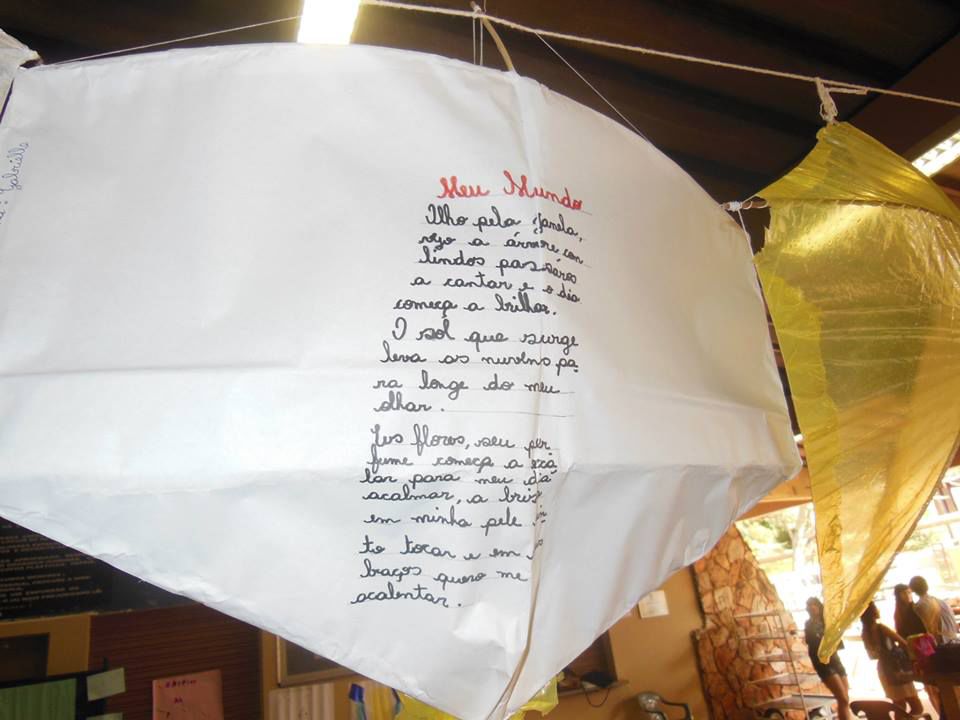 Gabrielle
Meu Mundo
Olho pela janela,
vejo a árvore con
lindos passáros
a cantar e o dia
começa a brilhar.
O sól que surge
leva as nuvens pa
ra longe do meu
olhar.
As flores, seu per
fume começa a exa
lar para meu dia
acalmar, a bris
em minha pele
to tocar e em
braços quero me
acalentar.